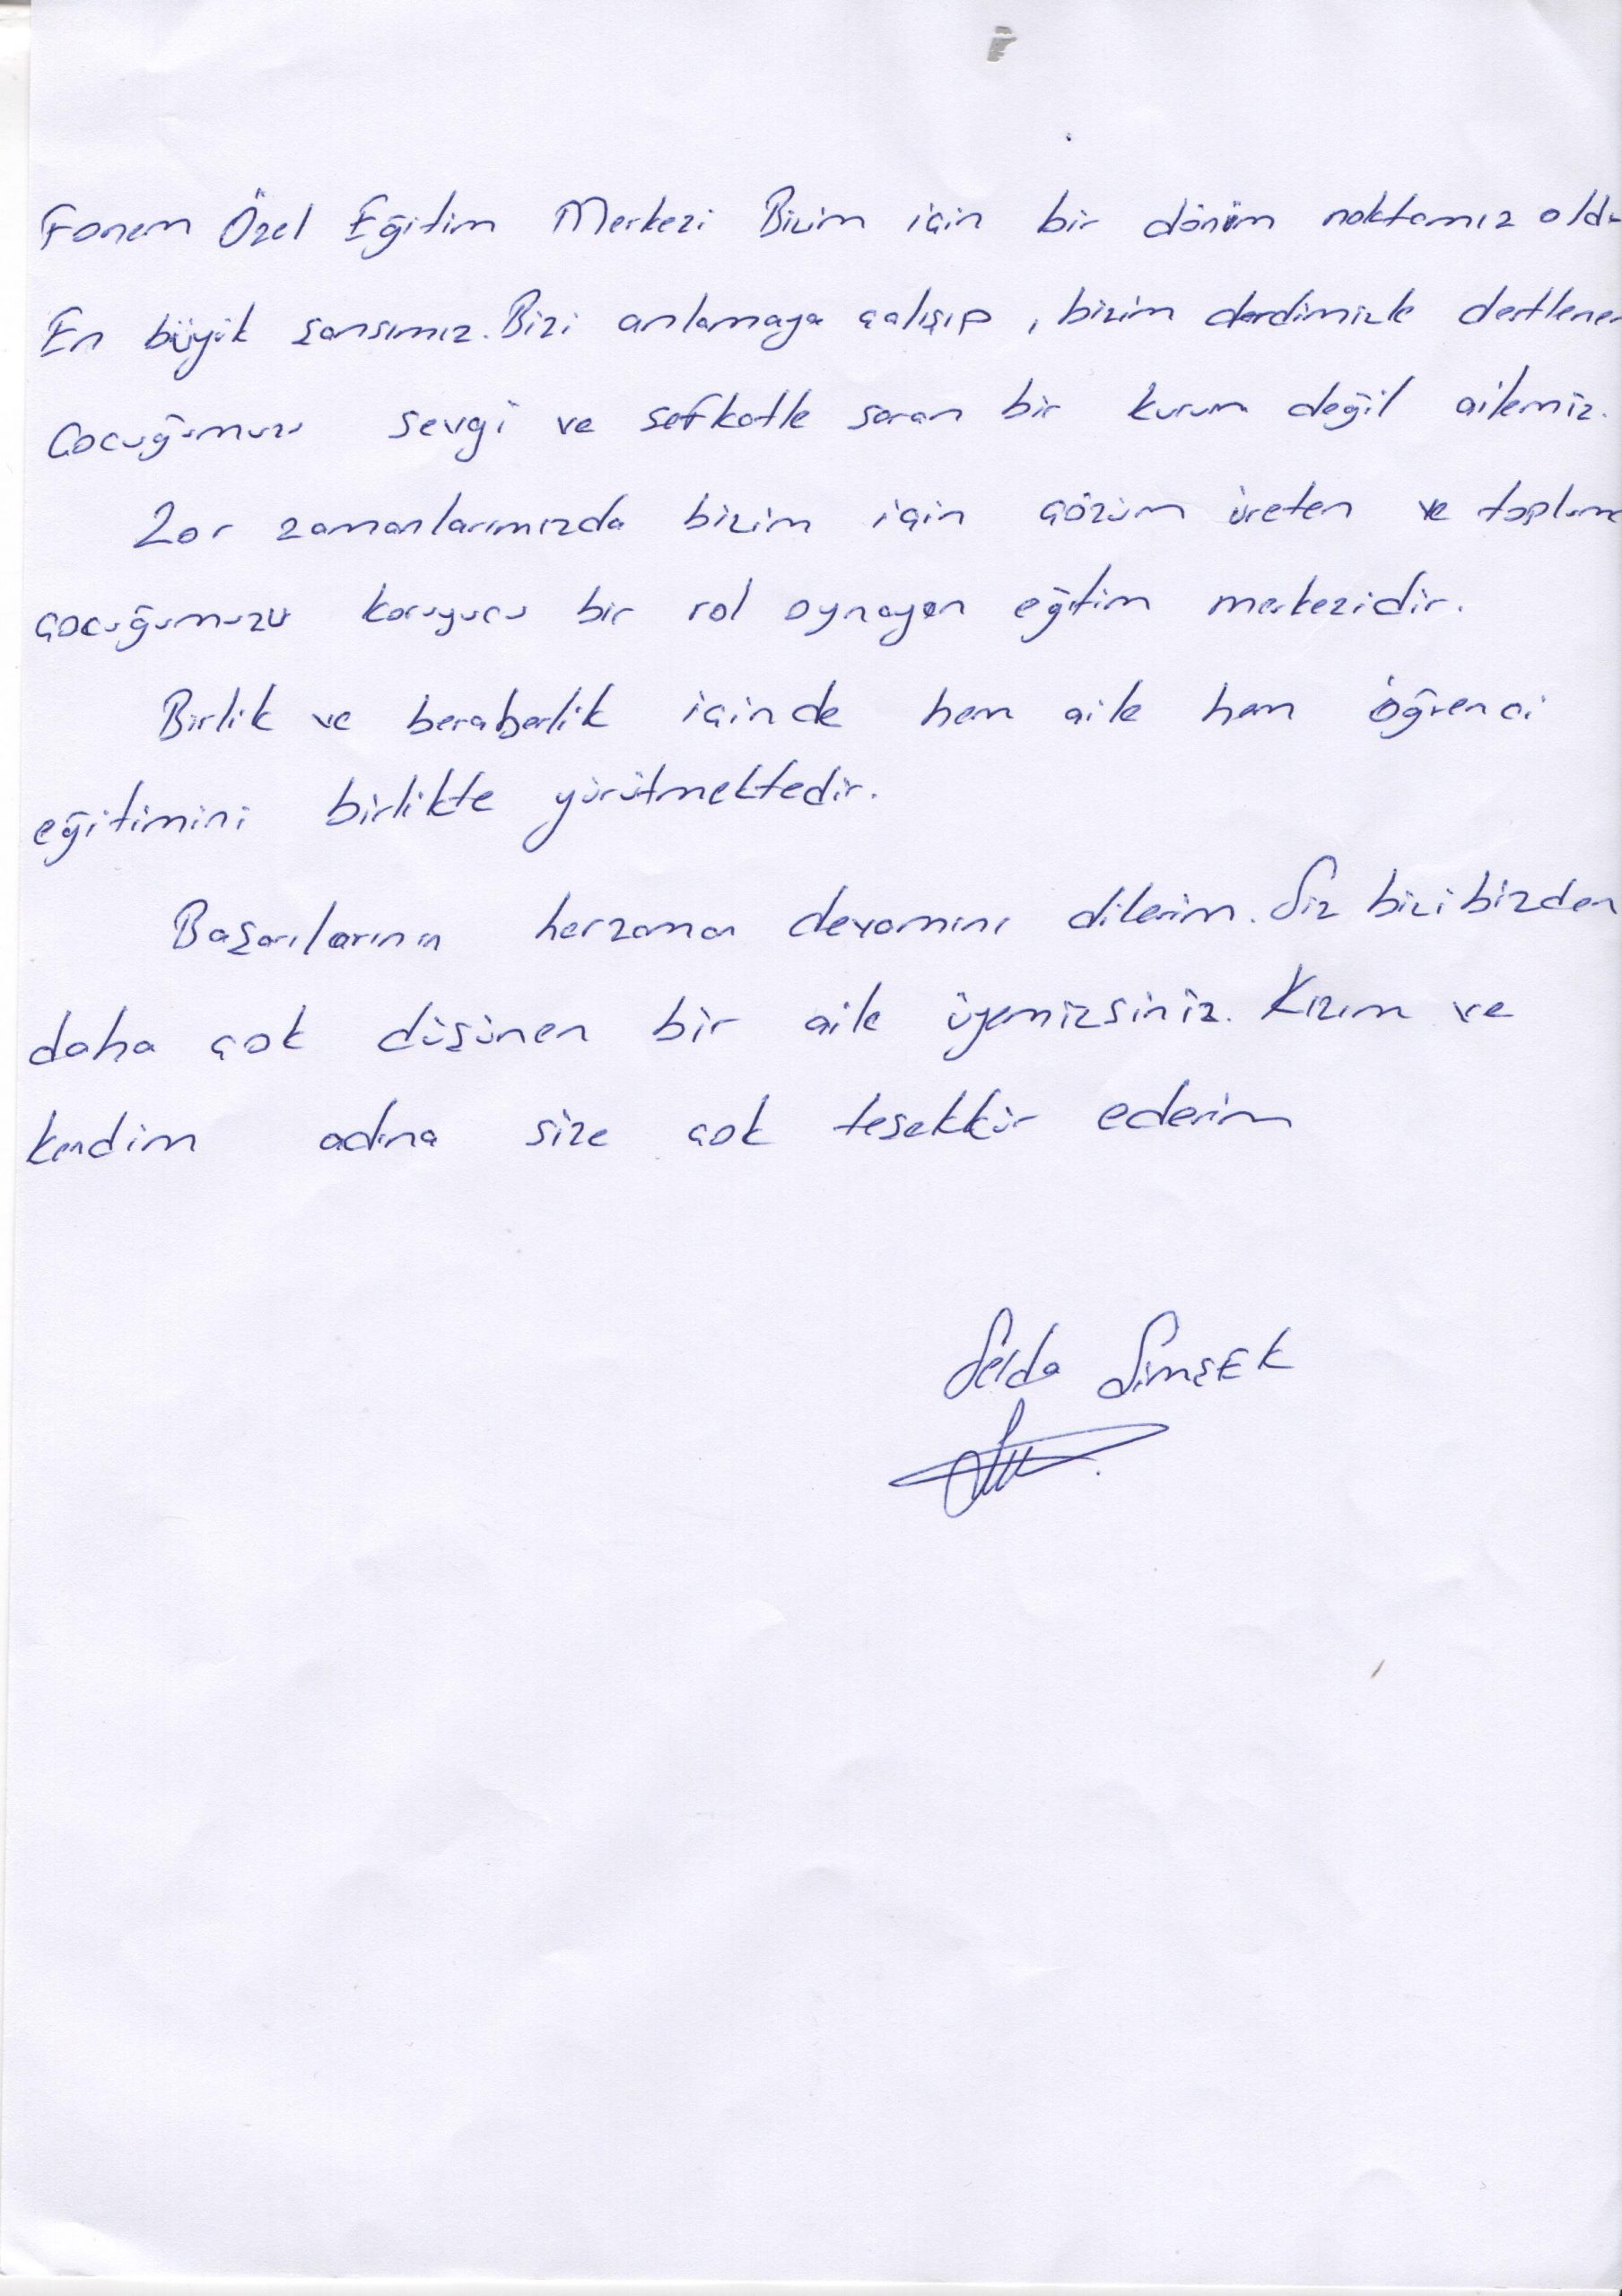 Fonem Özel Eğitim Merkezi Bizim için bir dönüm noktamız oldu
En büyük şansımız. Bizi anlamaya çalışıp, bizim derdimizle dertlenen
Çocuğumuzu sevgi ve şefkatle saran bir kurum değil ailemiz.
Zor zamanlarımızda bizim için çözüm üreten ve topluma
çocuğumuzu koruyucu bir rol oynayan eğitim merkezidir.
Birlik ve beraberlik içinde hem aile hem öğrenci
eğitimini birlikte yürütmektedir.
Başarılarının herzaman devamını dilerim. Siz bizi bizden
daha çok düşünen bir aile üyemizsiniz. Kızım ve
kendim adına size çok teşekkür ederim
Selda ŞimşEK